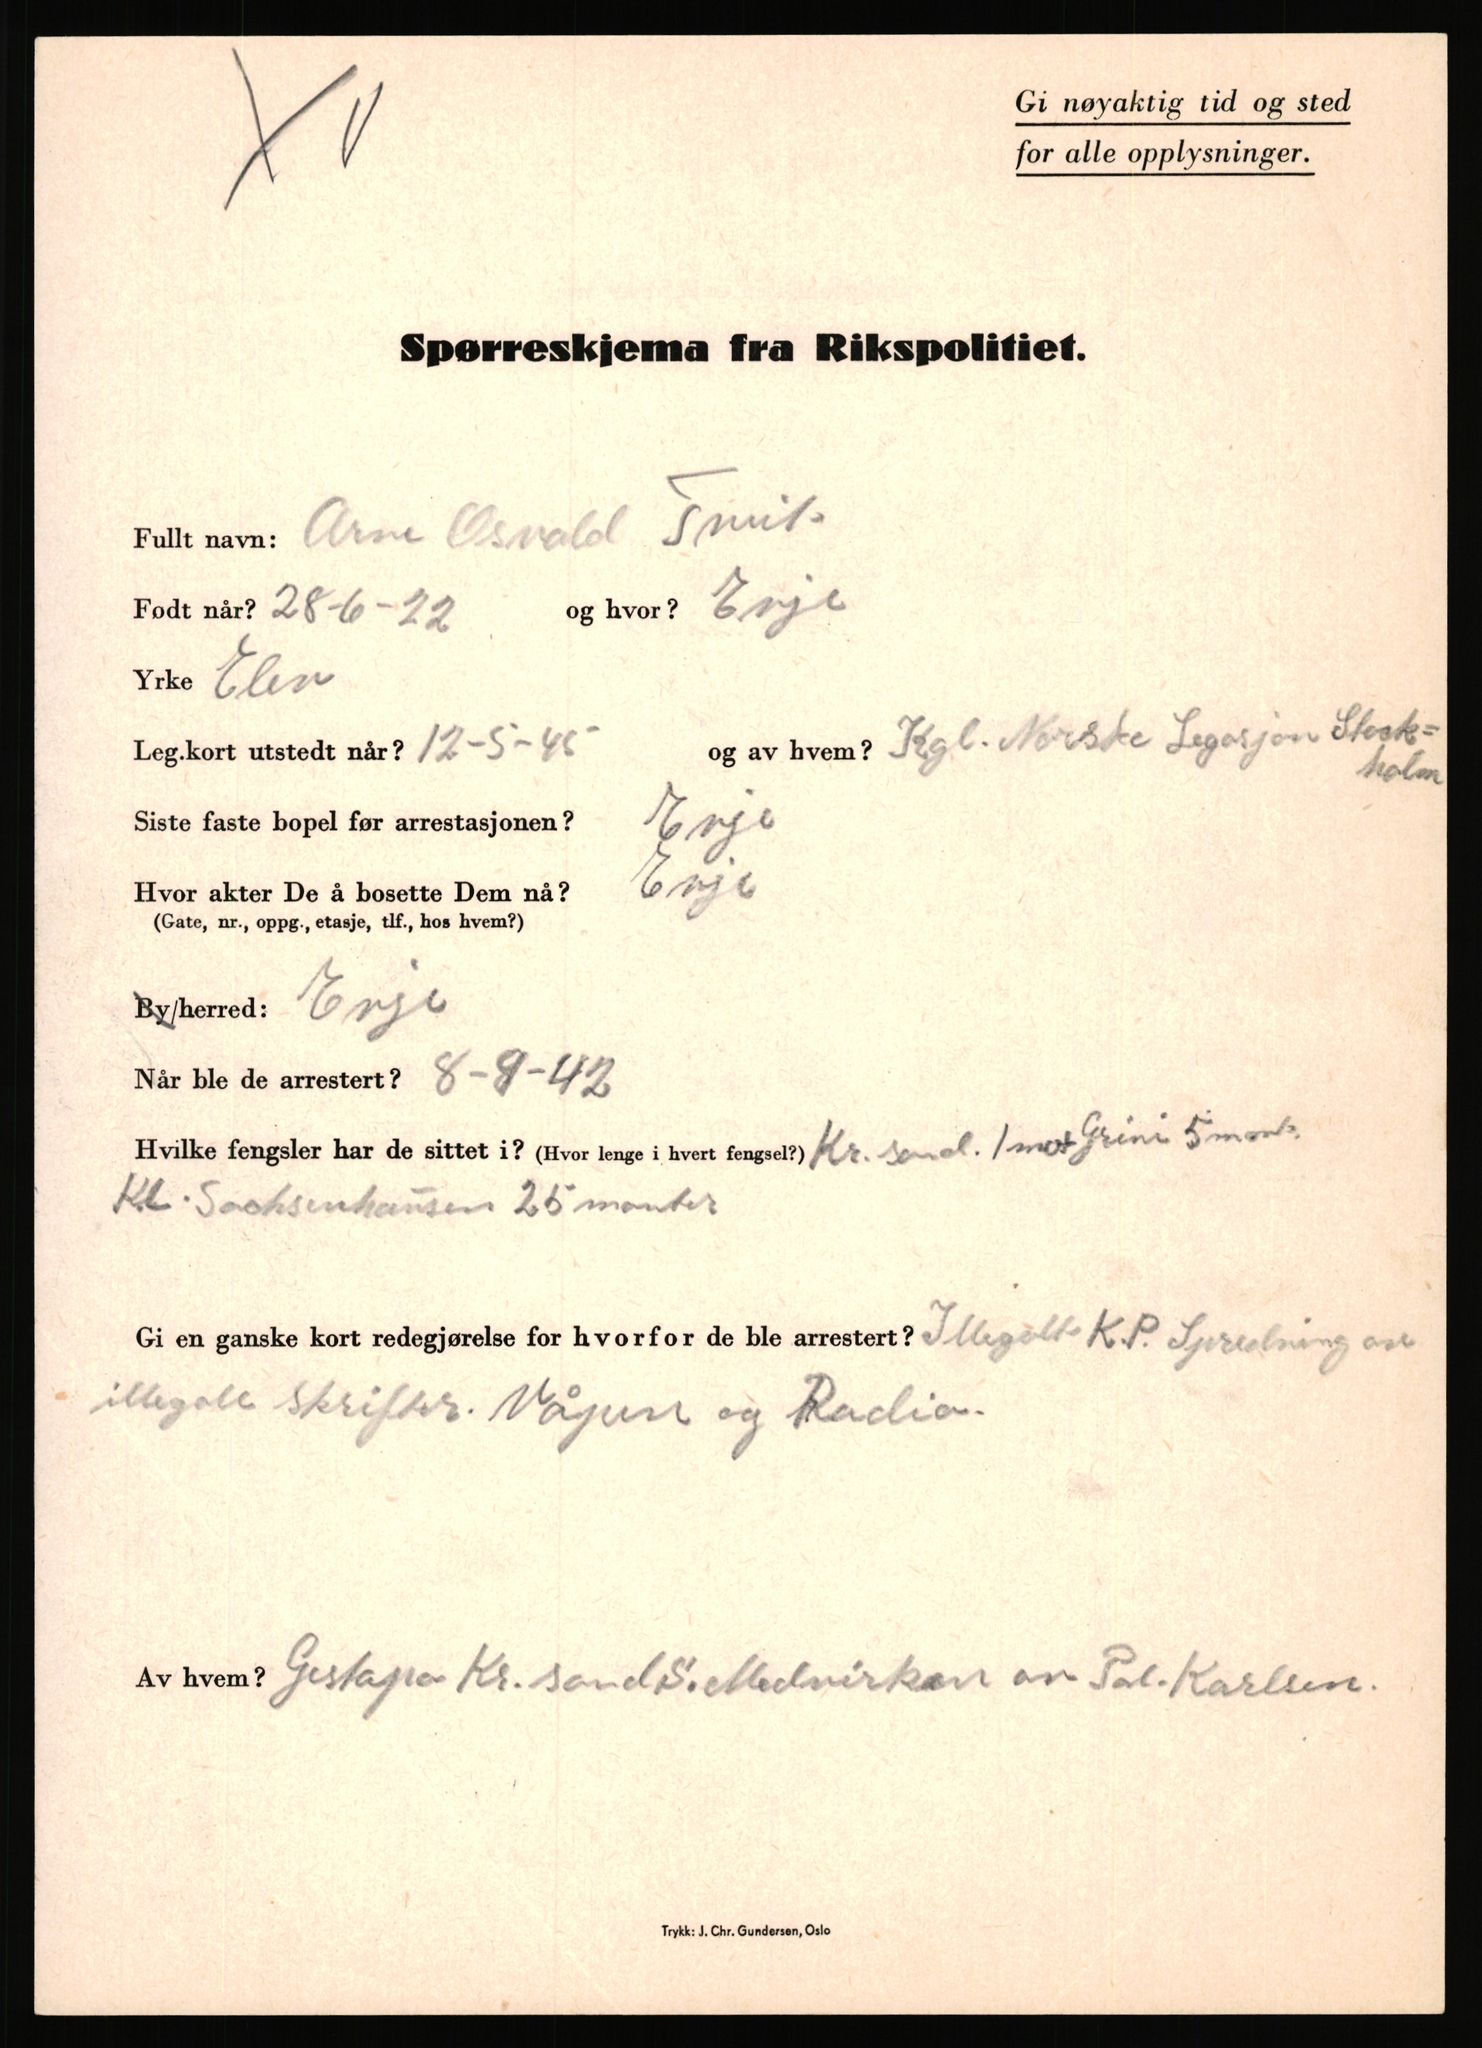 Gi nøyaktig tid og sted
for alle opplysninger.
Spørreskjema fra Rikspolitiet.
Fullt navn: Arne Osvald
Født når? 28-6-22 og hvor? Evje
Yrke Elev
Leg.kort utstedt når? 12-5-45 og av hvem? Kgl. Norske Legasjon Stock=
holm
Siste faste bopel før arrestasjonen? Evje
Hvor akter De å bosette Dem nå? Evje
(Gate, nr., oppg., etasje, tlf., hos hvem?)
By/herred: Evje
Når ble de arrestert? 8-9-42
Hvilke fengsler har de sittet i? (Hvor lenge i hvert fengsel?) Kr. sand. 1 Grini 5
KL. Sachsenhausen 25 manter
Gi en ganske kort redegjørelse for hvorfor de ble arrestert? Illegalt K.P. Spredning av
illegale skrifter. Våpen og Radio.
Av hvem? Gestapo Kr. sand S. Medvirken av Pol. Karlsen.
Trykk: J. Chr. Gundersen, Oslo